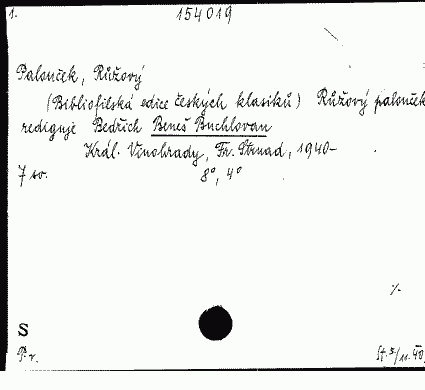 1. 154019
Palouček, Růžový
(Bibliofilská edice českých klasiků) Růžový palouček
rediguje Bedřich Beneš Buchlovan
Král. Vinohrady, Fr. Strnad, 1940-
7 sv. 8°, 4°
S
P. r.